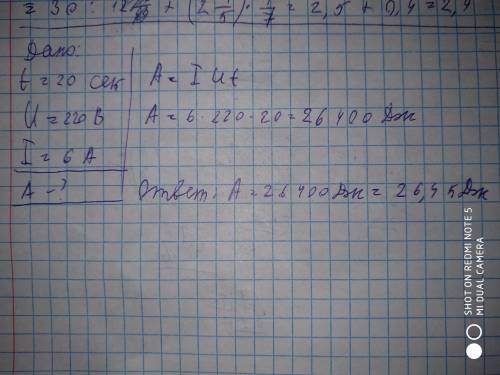 Дано:
t = 20 сек
U = 220 В
I = 6 А
A - ?
A = I U t
A = 6 · 220 · 20 = 26 400 Дж
Ответ: A = 26 400 Дж = 26,4 кДж
SHOT ON REDMI NOTE 5
MI DUAL CAMERA